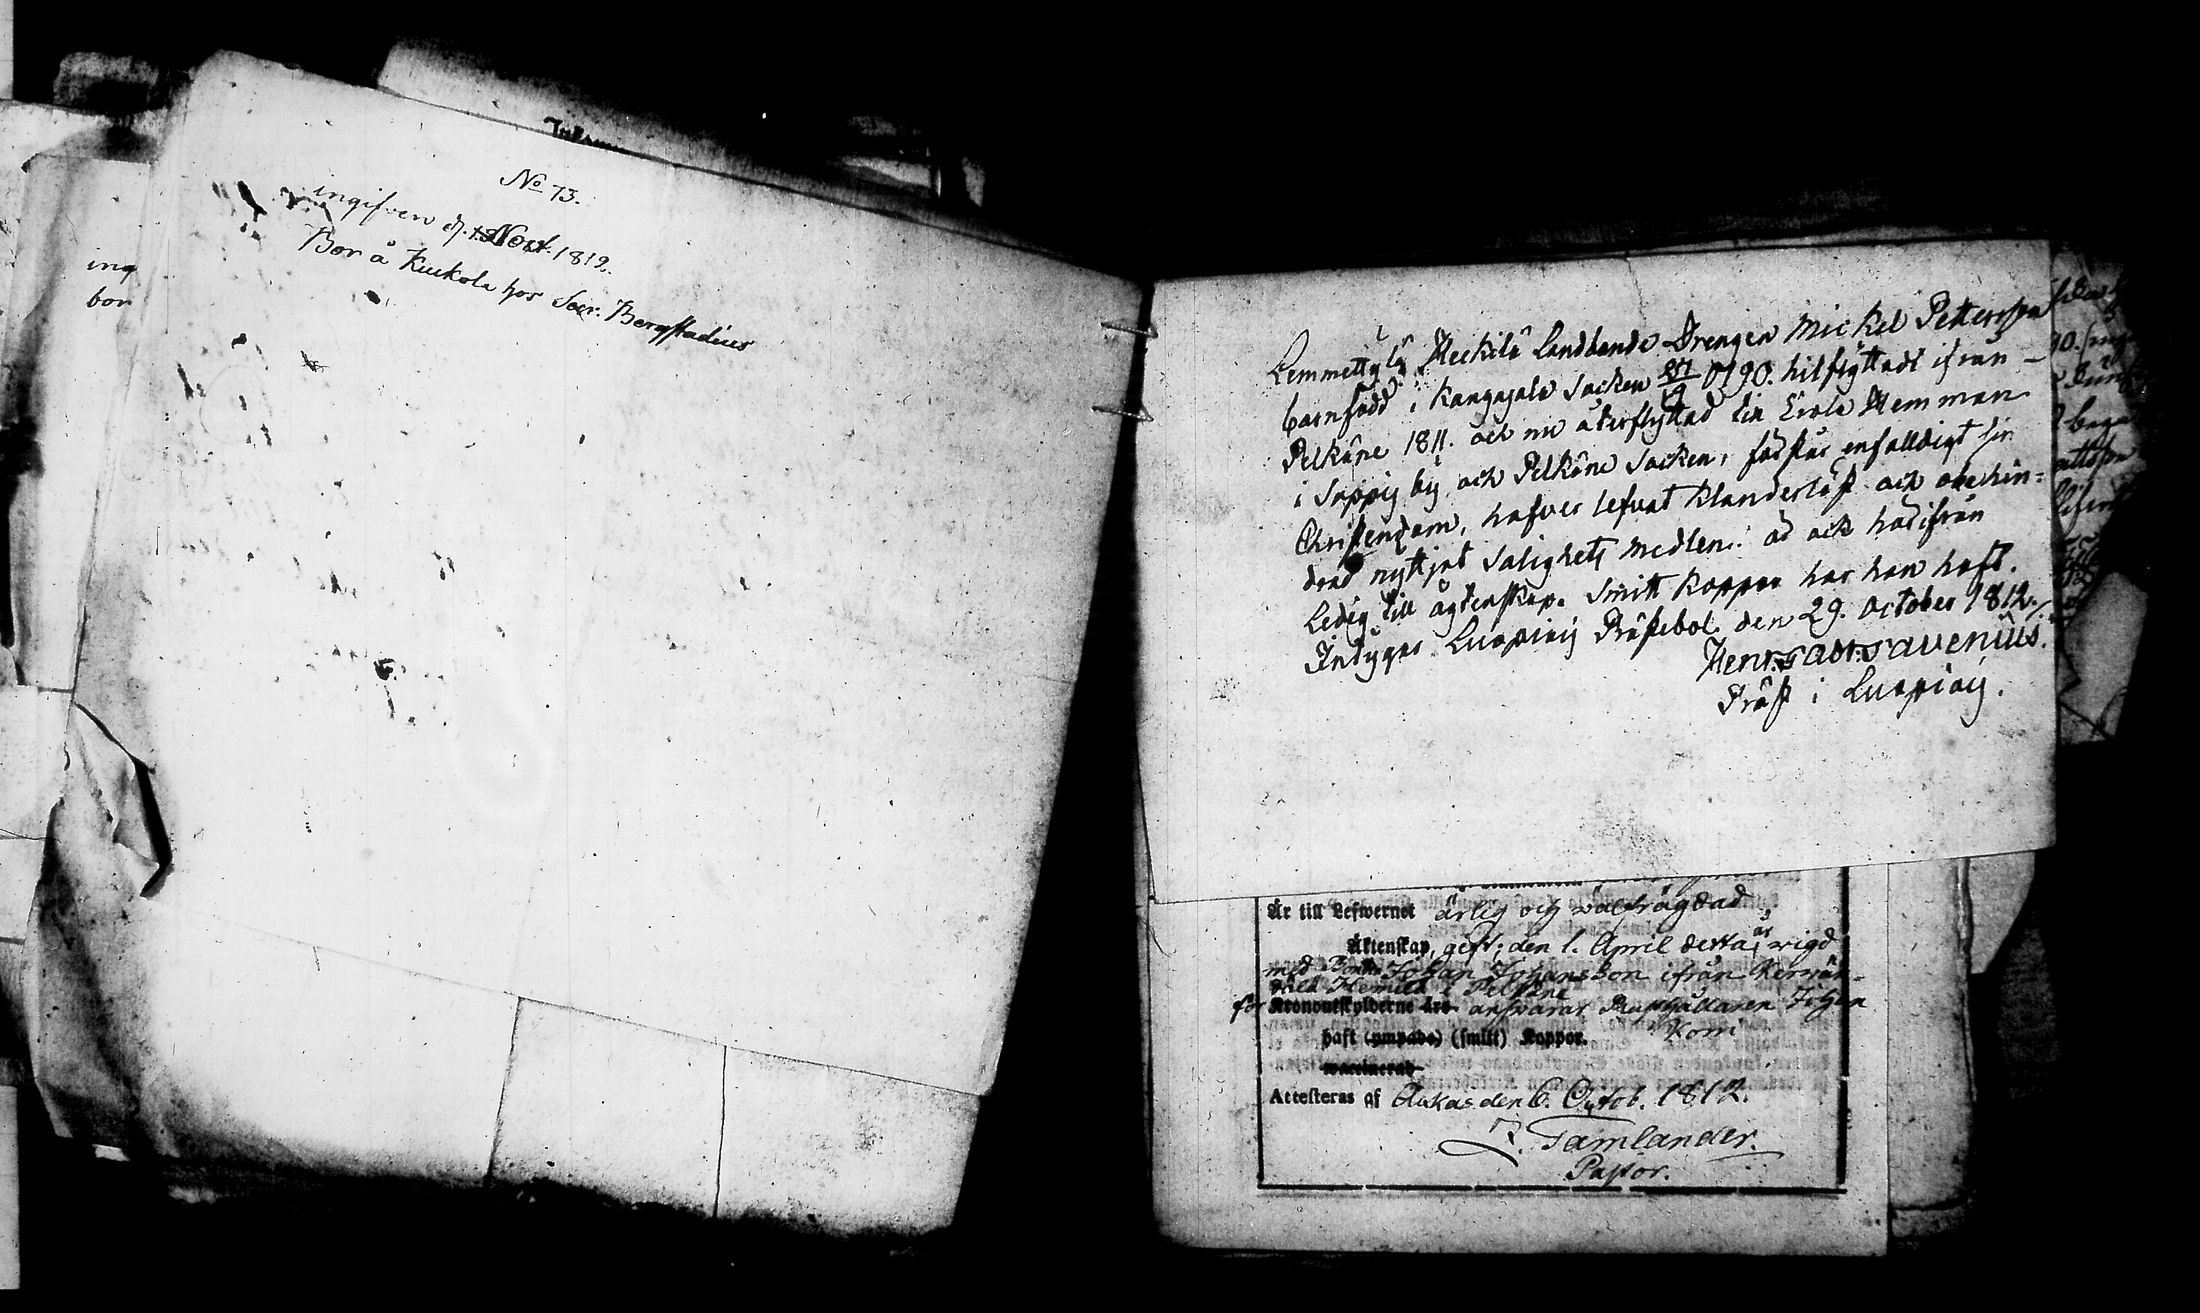 No 73.
ingifven d. 1. Novt. 1812.
Bor å Kuckola hos Secr. Bergstadius
ing
bor
Lemmettylä Heikilä Landbonde Drengen Mickel Pettersson
barnfödd i Kangasala Socken 1790. hitflyttadt ifrån
Pelkäne 1811. och nu återflyttad till Erola Hemman
i Sappij by och Pelkäne Socken, förstår enfalldigt sin
Christendom, hafver lefvat Klanderlöst och obehin-
drad nyttjat Salighets medlen: är ock härifrån
Ledig till ägtenskap. Smitt koppor har han haft.
Intygas Luopiois Prästebol. den 29. October 1812./.
Henr. G. Adr. Savenius.
Präst i Luopiois.
Är till Lefwernet ärlig och välfrägdad
Äktenskap, gift; den 1. April detta år, vigd
med Bonden Johan Johansson ifrån
Hemman i Pelkäne
för Kronoutskylderne års ansvarar Rusthållaren Johan
Korri
haft (ympade) (smitt) Koppor.
vaccinerad
Attesteras af Aukas den 6. Octob. 1812.
J. Tamlander.
Pastor.